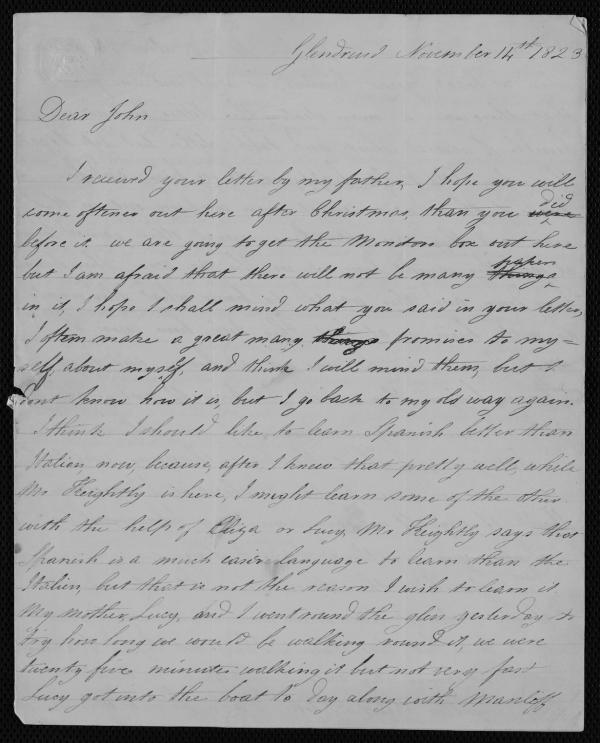 Glendruid November 14th 1823
Dear John
I received your letter by my father, I hope you will
come oftener out here after Christmas, than you were did
before it, we are going to get the Monitors box out here
but I am afraid that there will not be many things papers
in it, I hope I shall mind what you said in your letter,
I often make a great many things promises to my=
self, about myself, and think I will mind them, but I
dont know how it is, but I go back to my old way again.
I think I should like to learn Spanish better than
Italien, now, because, after I knew that pretty well, while
Mr Keightly is here, I might learn some of the other
with the help of Eliza or Lucy, Mr Keightly says that
Spanish is a much easier language to learn than the
Italien, but that is not the reason I wish to learn it
My mother, Lucy, and I went round the glen yesterday to
try how long we would be walking round it, we were
twenty five minutes walking it but not very fast
Lucy got into the boat to day along with